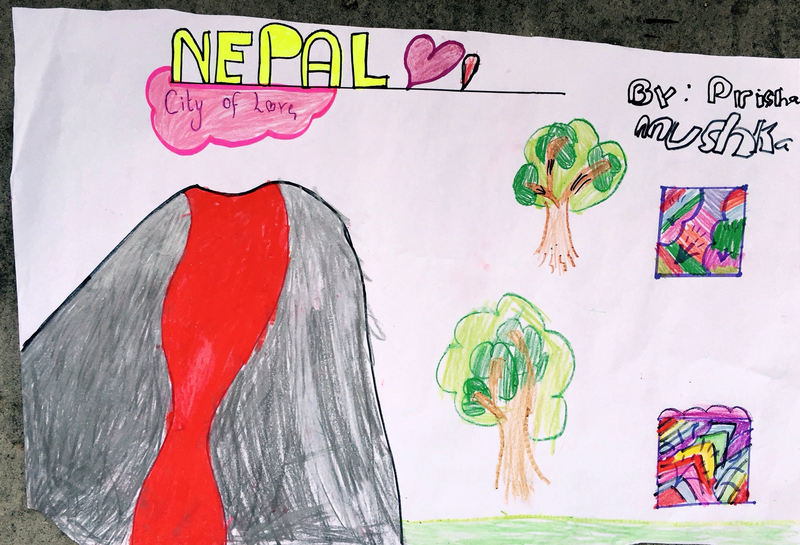 NEPAL
City of Love
By: Prisha
Anushka